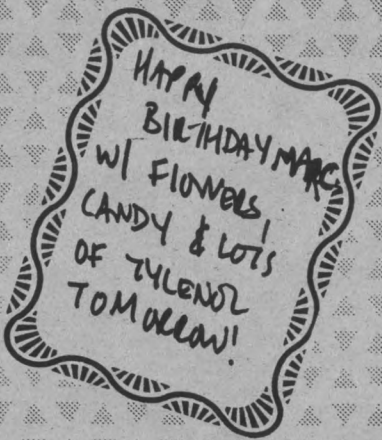 HAPPY
BIRTHDAY MARC
W/ FLOWERS,
CANDY & LOTS
OF TYLENOL
TOMORROW!